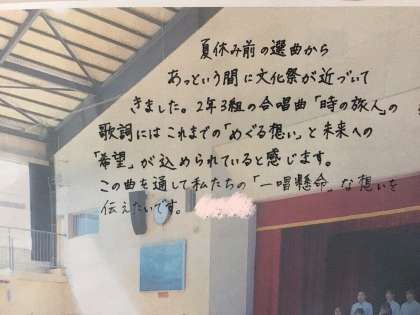 夏休み前の選曲から
あっという間に文化祭が近づいて
きました。2年3組の合唱曲「時の旅人」の
歌詞にはこれまでの「めぐる想い」と未来への
「希望」が込められていると感じます。
この曲を通して私たちの「一唱懸命」な想いを
伝えたいです。